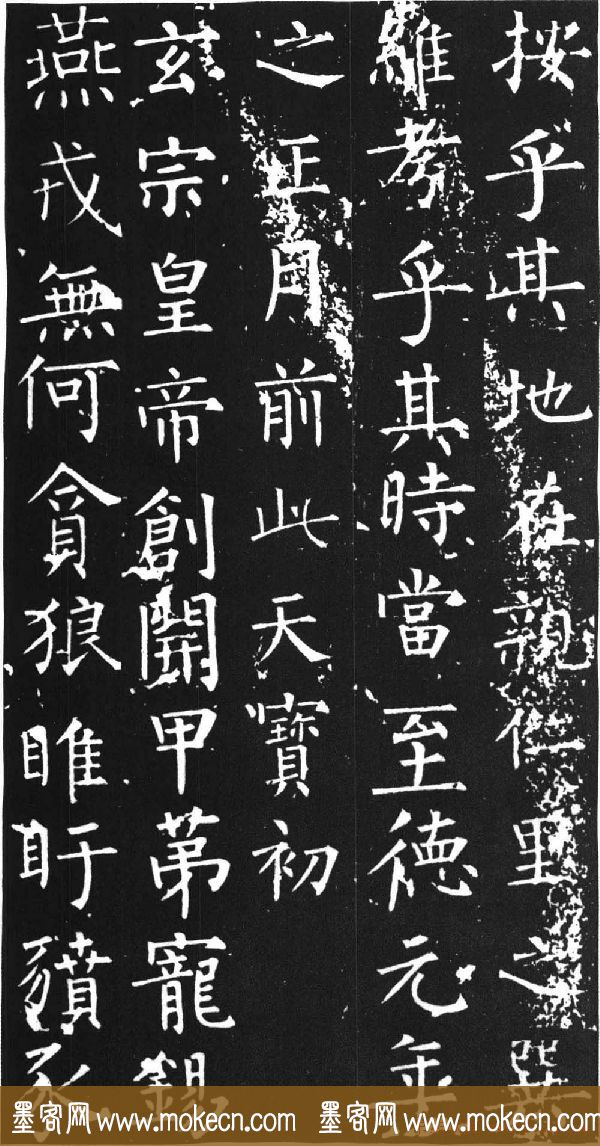 按乎其地在親仁里之巽
維考乎其時當至德元年
之正月前此天寶初
玄宗皇帝創開甲第寵錫
燕戎無何貪狼睢盱豶豕
墨客网 www.mokecn.com 墨客网 www.mokecn.com